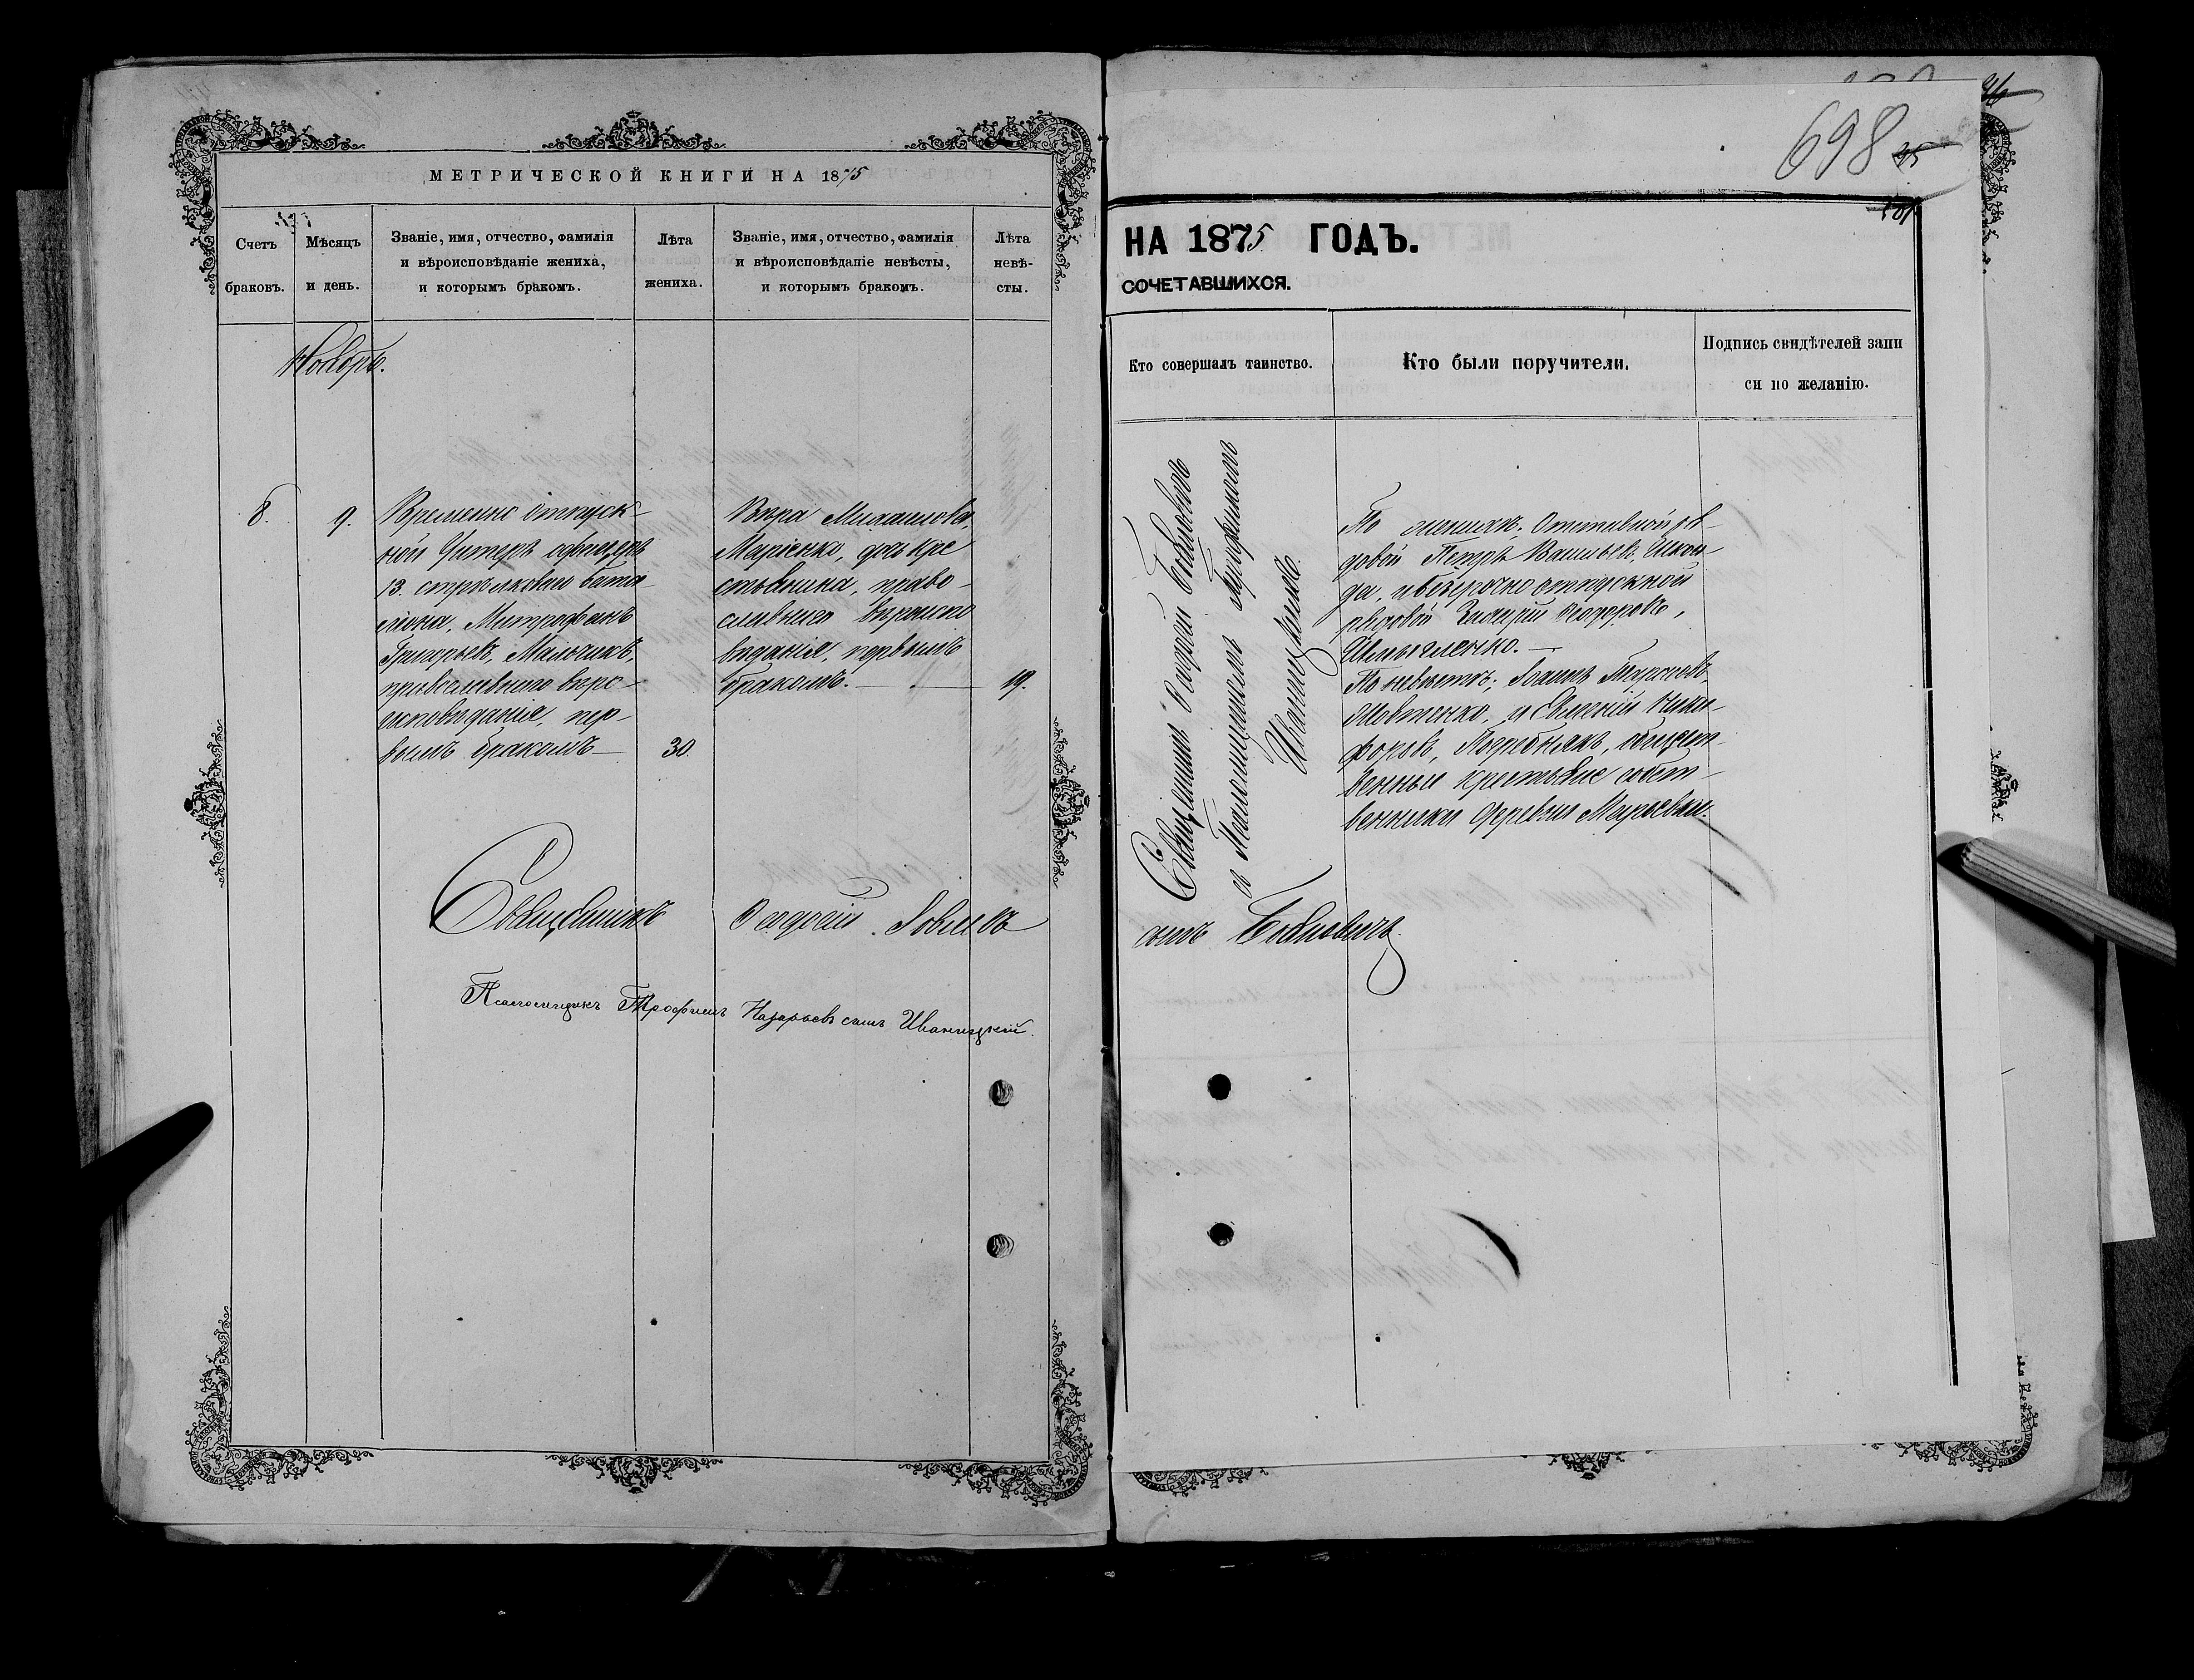 МЕТРИЧЕСКОЙ КНИГИ НА 1875
Счетъ браковъ.
Мѣсяцъ и день.
Званіе, имя, отчество, фамилія
и вѣроисповѣданіе жениха,
и которымъ бракомъ.
Лѣта
жениха.
Званіе, имя, отчество, фамилія
и вѣроисповѣданіе невѣсты,
и которымъ бракомъ.
Лѣта
невѣ-
сты.
Ноябрь.
8.
9.
Временно отпуск-
ной Унтеръ офицеръ
13. стрѣлковаго бата-
ліона, Митрофанъ
Григорьевъ, Мальчикъ,
православнаго вѣро-
исповѣданія, пер-
вымъ бракомъ
30.
Вѣра Михаилова,
Марієнко, дочь кре
стьянина, право-
славнаго вѣроиспо
вѣданія, первымъ
бракомъ.
19.
Священникъ Ѳеодосій Іовлевъ
Псаломщикъ Трофимъ Назарьевъ сынъ Иваницкій.
698
26
25
НА 1875 ГОДЪ.
СОЧЕТАВШИХСЯ.
Кто совершалъ таинство.
Кто были поручители.
Подпись свидѣтелей запи
си по желанію.
Священникъ Ѳеодосій
съ Псаломщикомъ Трофимомъ
Иваницкимъ.
По женихѣ: Отставной ря-
довой Петръ Васильевъ, Шкон-
да, и безсрочно отпускной
рядовой Захарій Ѳеодоровъ,
По невѣстѣ; Іоаннъ
Мовтенко, и Евгеній Ники-
форовъ, Подрѣбнякъ,
венные крестьяне собст-
венники деревни Марьевки.
сынъ